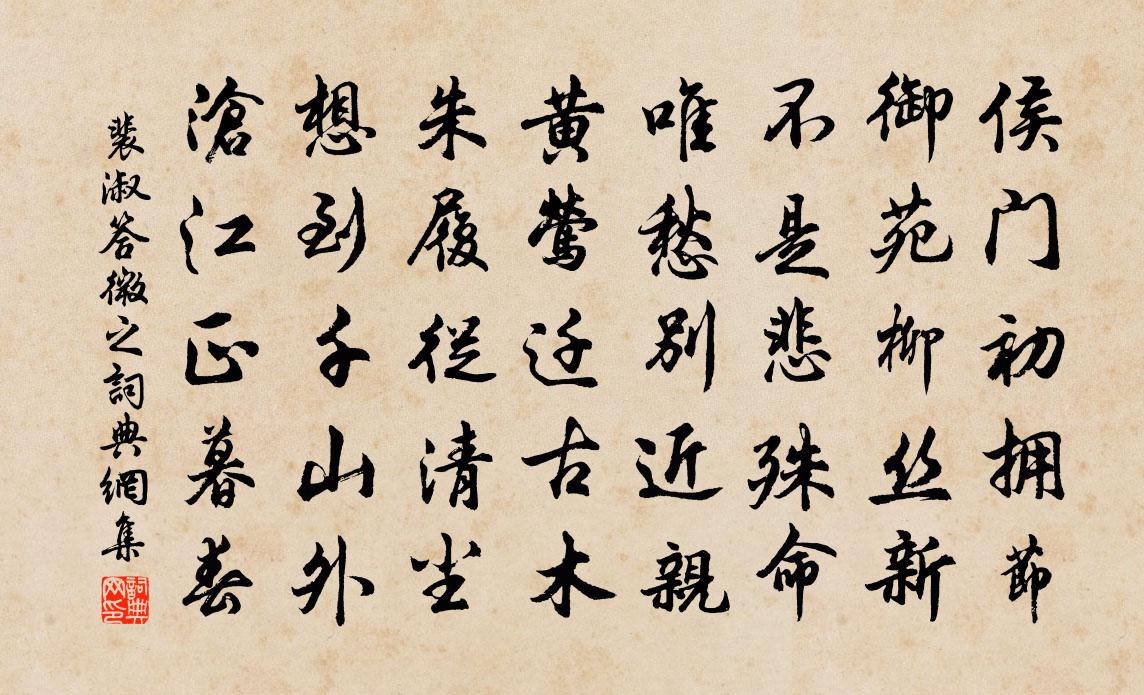 侯门初拥节
御苑柳丝新
不是悲殊命
唯愁别近親
黄莺迁古木
朱履從清尘
想到千山外
滄江正暮春
裴淑答微之詞典網集
詞典网印